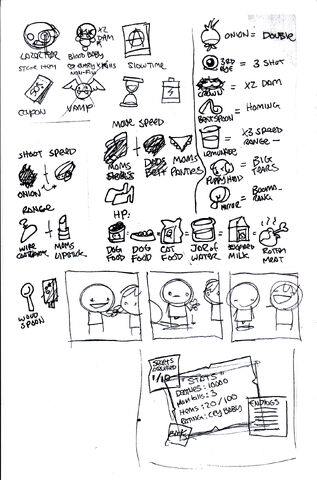 X2
DAM
LAZARTHAR
BLOOD BABY
EVERY KILLS
STORE ITEM
SLOW TIME
COUPON
VAMP
ONION = DOUBLE
3RD
EYE = 3 SHOT
CROWN = X2 DAM
BENT SPOON = HOMING
X3 SPEED
LEMONADE = RANGE -
PUPPY HEAD = BIG
TEARS
MIRROR = BOOMA-
RANG
SHOOT SPEED
ONION
MOVE SPEED
MOMS
SHOES
DADS
BELT
MOMS
PANTIES
RANGE
WIRE
COATHANGER
MAMS
LIPSTICK
HP:
DOG
FOOD
DOG
FOOD
CAT
FOOD
JAR OF
WATER
MILK
ROTTEN
MEAT
WOOD
SPOON
SECRETS
UNLOCKED
1/10
"STATS"
DEATHS: 10000
MOM KILLS: 3
ITEMS: 20/100
RATING: CRY BABY
BACK
ENDINGS